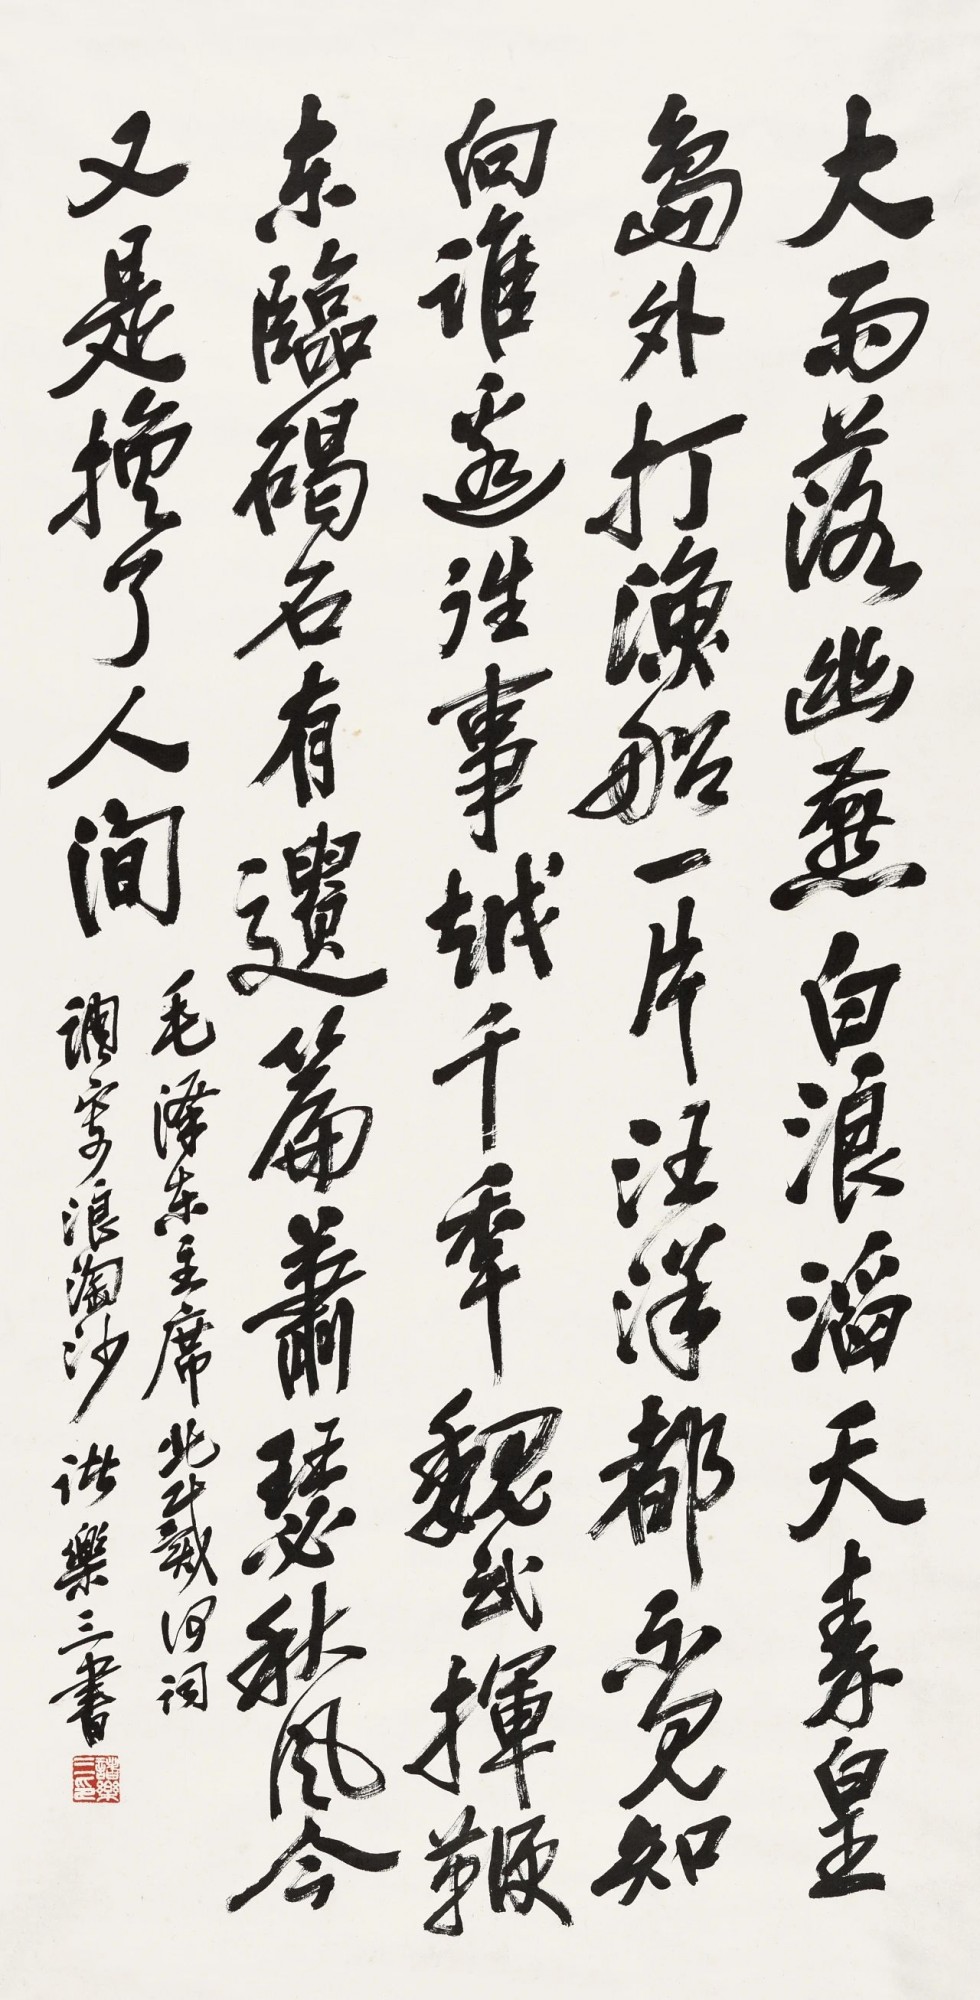 大雨落幽燕白浪滔天秦皇
島外打漁船一片汪洋都不見知
向誰邊往事越千秊魏武揮鞭
东臨碣石有遺篇蕭瑟秋风今
又是換了人间
毛澤东主席北戴河词
調寄浪淘沙 诸樂三書
諸樂三印